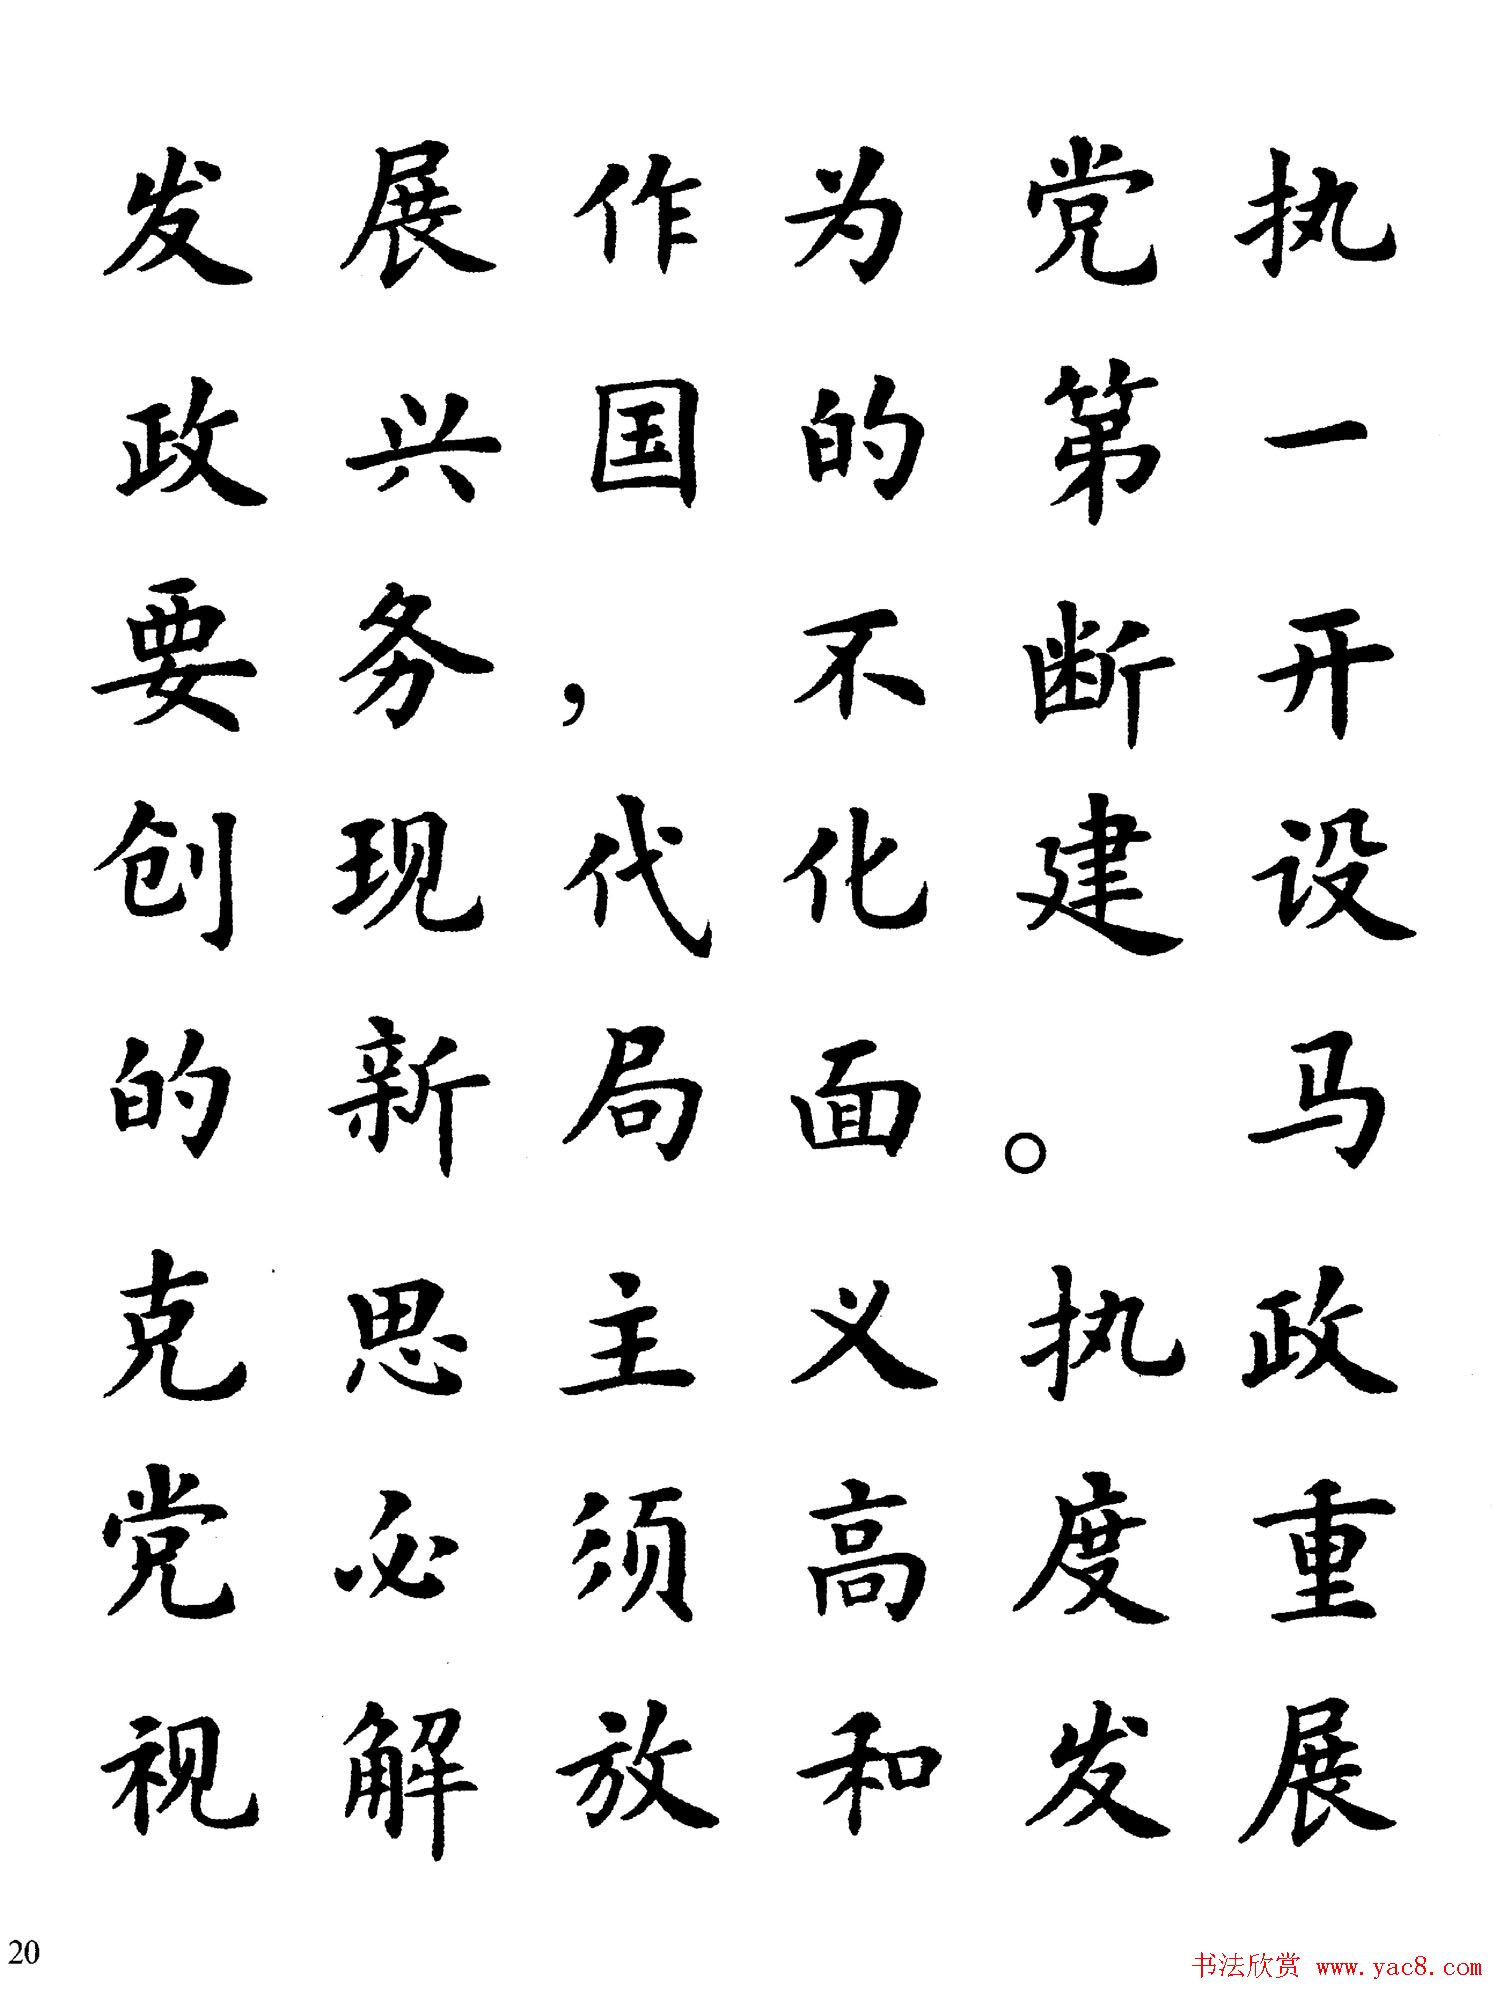 发展作为党执
政兴国的第一
要务，不断开
创现代化建设
的新局面。马
克思主义执政
党必须高度重
视解放和发展
20
书法欣赏 www.yac8.com